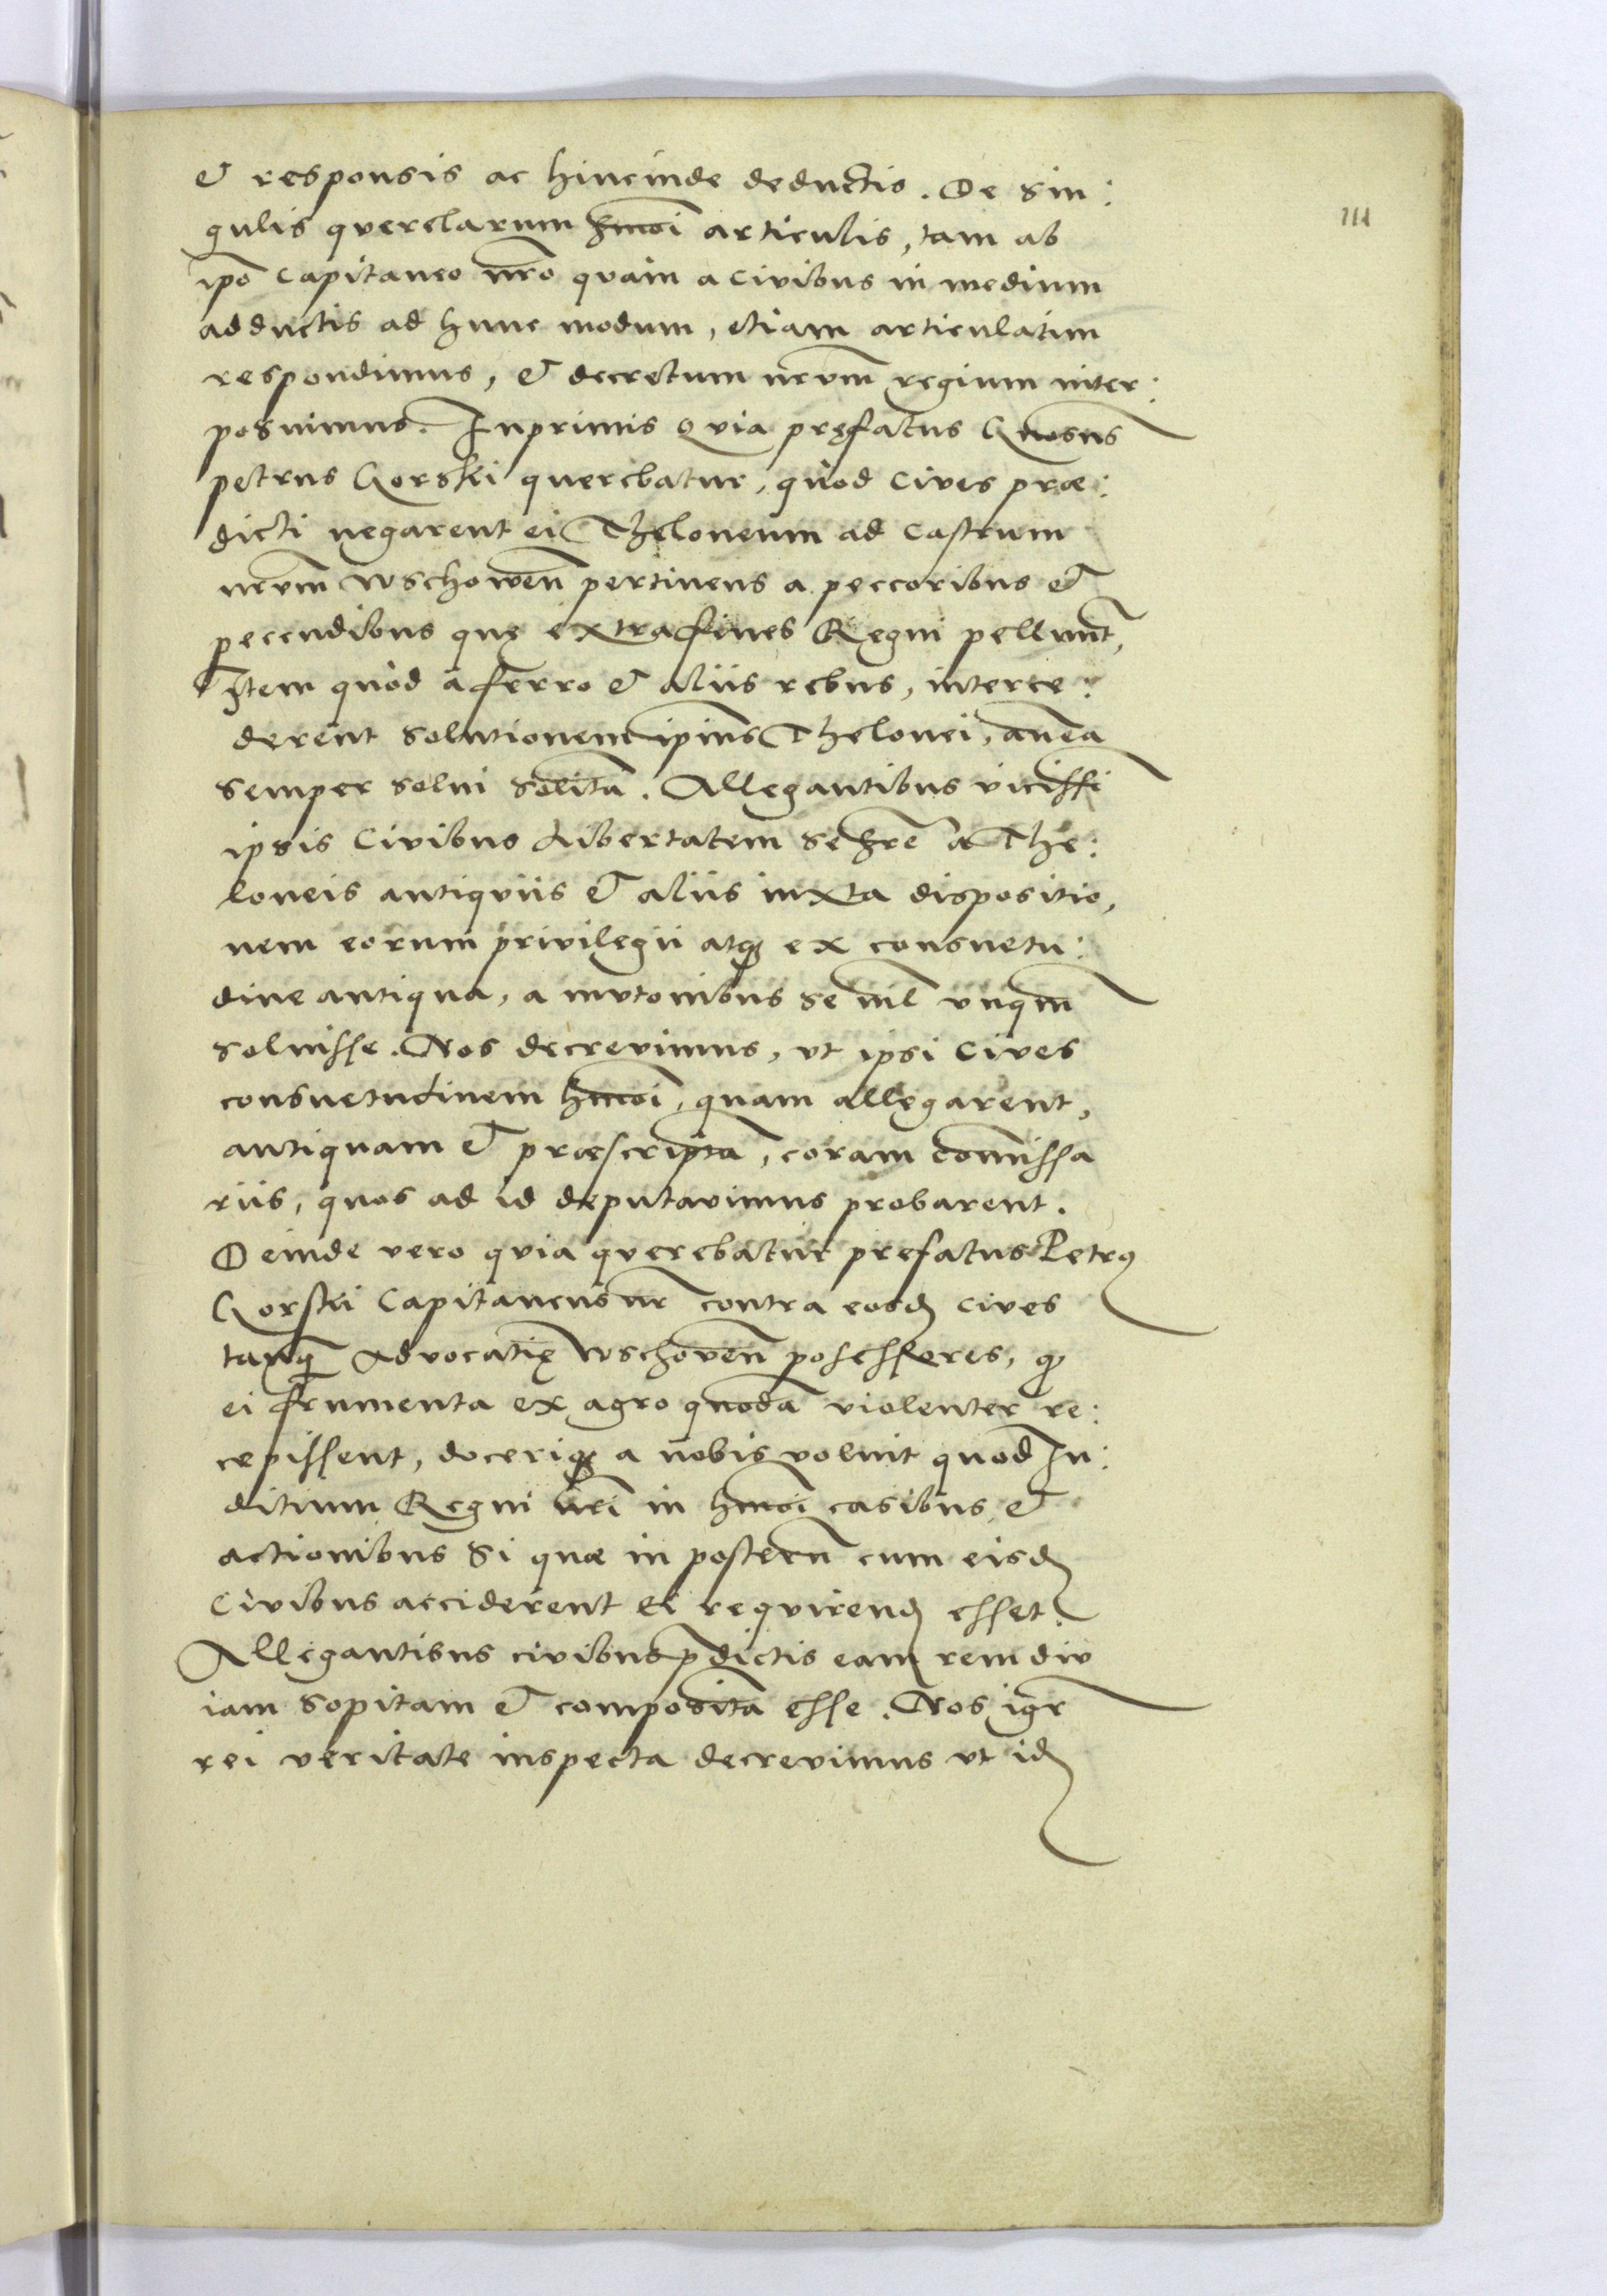 & responsis ac hincinde deductis. De sin:
gulis querelarum hmōi articulis, tam ab
ipō Capitaneo nr̄o quam a Civibus in medium
adductis ad hunc modum, etiam articulatim
respondimus, & decretum nr̄vm regium inter:
posuimus. Inprimis Quia pręfatus Gnosus
petrus Gorski querebatur, quod Cives præ:
dicti negarent ei Theloneum ad Castrum
nr̄vm Wschowen̄ pertinens a peccoribus &
pecudibus quę extra fines Regni pellunt̄,
Item quod a ferro & aliis rebus, interce:
derent solutionem ipius Thelonei, antea
semper solui solita. Allegantibus vicissi
ipsis Civibus Libertatem se hr̄e a The:
loneis antiquis & aliis iuxta dispositio,
nem eorum privilegii atq ex consuetu:
dine antiqua, a mutonibus se nil vnqm
soluisse. Nos decrevimus, vt ipsi Cives
consuetudinem hmōi, quam allegarent,
antiquam & præscriptā, coram Comissa
riis, quos ad id deputavimus probarent.
Deinde vero quia querebatur prefatus Petrꝯ
Gorski Capitaneus nr̄ contra eosd Cives
tanq̄ Advocatię Wschoven̄ possessores, q
ei frumenta ex agro quodā violenter re:
cepissent, doceriq a nobis voluit quod Iu:
ditium Regni nr̄i in hmōi casibus &
actionibus si quæ in posterū cum eisd
Civibus acciderent Ei requirend esset.
Allegantibus civibus p̄dictis eam rem div
iam sopitam & compositā esse. Nos igr̄
rei veritate inspecta decrevimus vt id
111